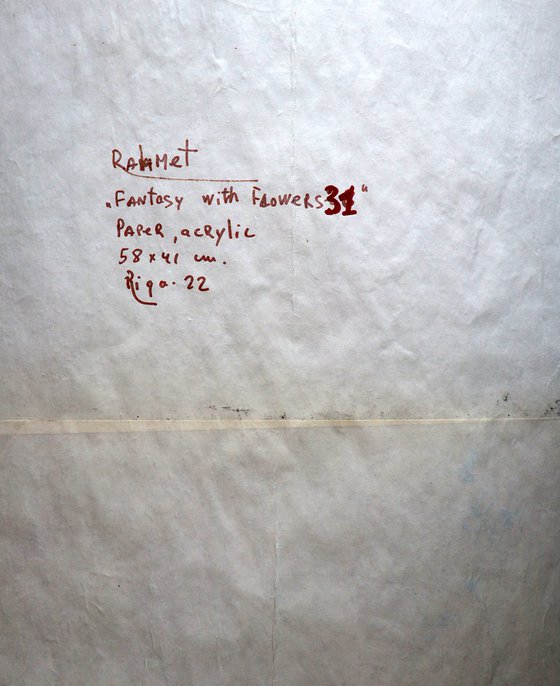 Rakhmet
„Fantasy with Flowers 31"
Paper, acrylic
58 x 41 cm.
Riga. 22